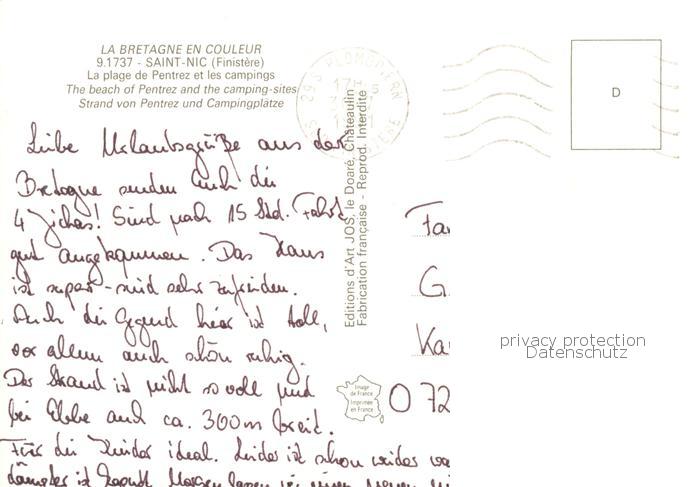 LA BRETAGNE EN COULEUR
9.1737 - SAINT-NIC (Finistère)
La plage de Pentrez et les campings
The beach of Pentrez and the camping-sites
Strand von Pentrez und Campingplätze
29 S PLOMODIERN
FINISTERE
D
Editions d'Art JOS, le Doaré, Châteaulin
Fabrication française - Reprod. Interdite
Liebe Urlaubsgrüße aus der
Bretagne senden Euch die
4 Sind nach 15 Std. Fahrt
gut angekommen. Das Haus
ist super - sind sehr zufrieden.
Auch die Gegend hier ist toll,
vor allem auch schön ruhig.
Der Strand ist nicht so voll und
bei Ebbe auch ca. 300m breit.
Für die Kinder ideal. Leider ist schon wieder
ist Morgen
Fa
G
Ka
0 72
Image
de France
Imprimée
en France
privacy protection
Datenschutz